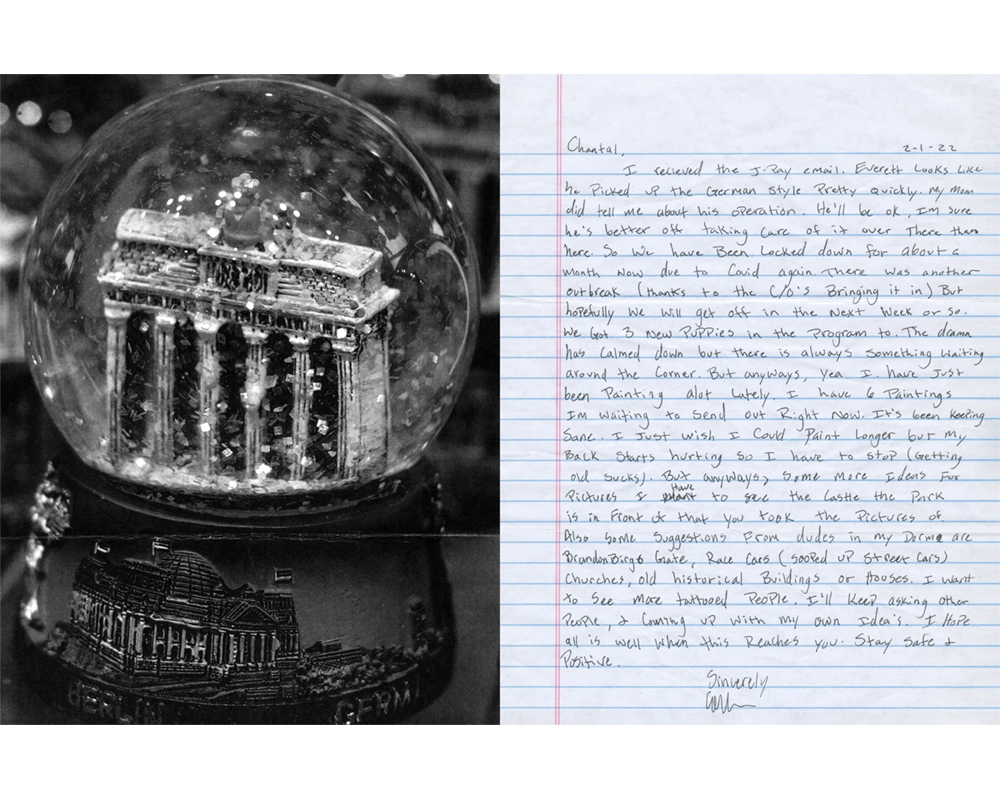 BERLIN
GERM
Chantal,
2-1-22
I recieved the J-Pay email. Everett Looks Like
he Picked up the German Style Pretty Quickly. My mom
did tell me about his operation. He'll be ok, Im sure
he's better off taking Care of it over There then
here. So We have Been Locked down for about a
month Now due to Covid again. There was another
outbreak (thanks to the C/O's Bringing it in) But
hopefully We will get off in the Next Week or So.
We Got 3 New Puppies in the Program to. The drama
has Calmed down but there is always Something Waiting
around the Corner. But anyways, Yea I have Just
been Painting alot Lately. I have 6 Paintings
Im waiting to Send out Right Now. It's been Keeping
Sane. I Just wish I Could Paint Longer but My
Back Starts hurting So I have to stop (Getting
old Sucks). But anyways, Some more Ideas For
Pictures I have to see the Castle the Park
is in Front of that you took the Pictures of.
Also Some Suggestions From dudes in my Dorm are
BrandonBirg Gate, Race Cars (Sooped up Street Cars)
Churches, old historical Buildings or Houses. I Want
to See more tattooed People. I'll Keep asking other
People, & Coming up With my own Idea's. I Hope
all is well When this Reaches you. Stay Safe &
Positive.
Sinverely